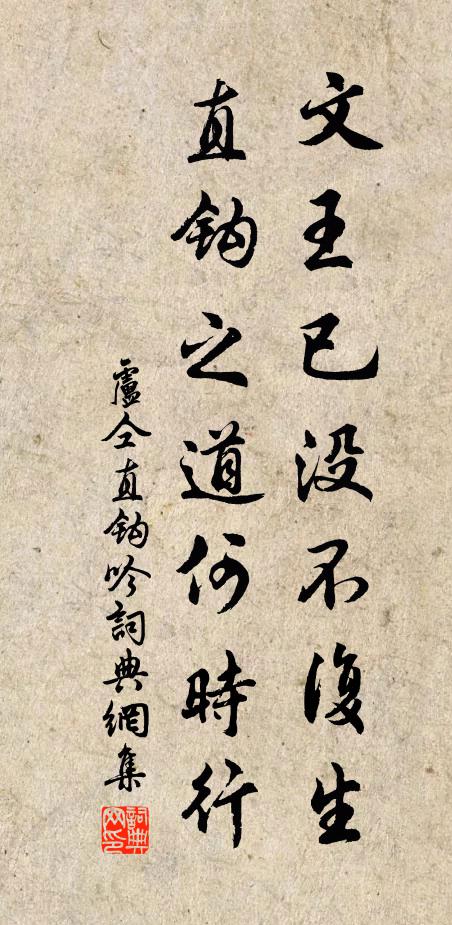 文王已没不復生
直鈎之道何時行
盧仝直鈎吟詞典網集
詞典网印